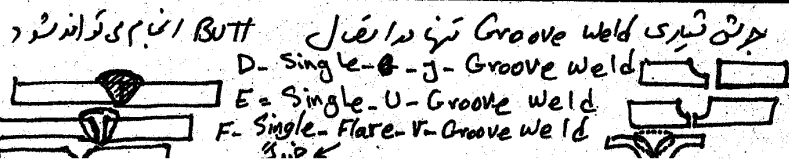 جوش شیاری Groove weld تنها در اتصال Butt انجام می تواند شود
D- Single-J-Groove weld
E= Single-U-Groove weld
F- Single-Flare-V-Groove weld